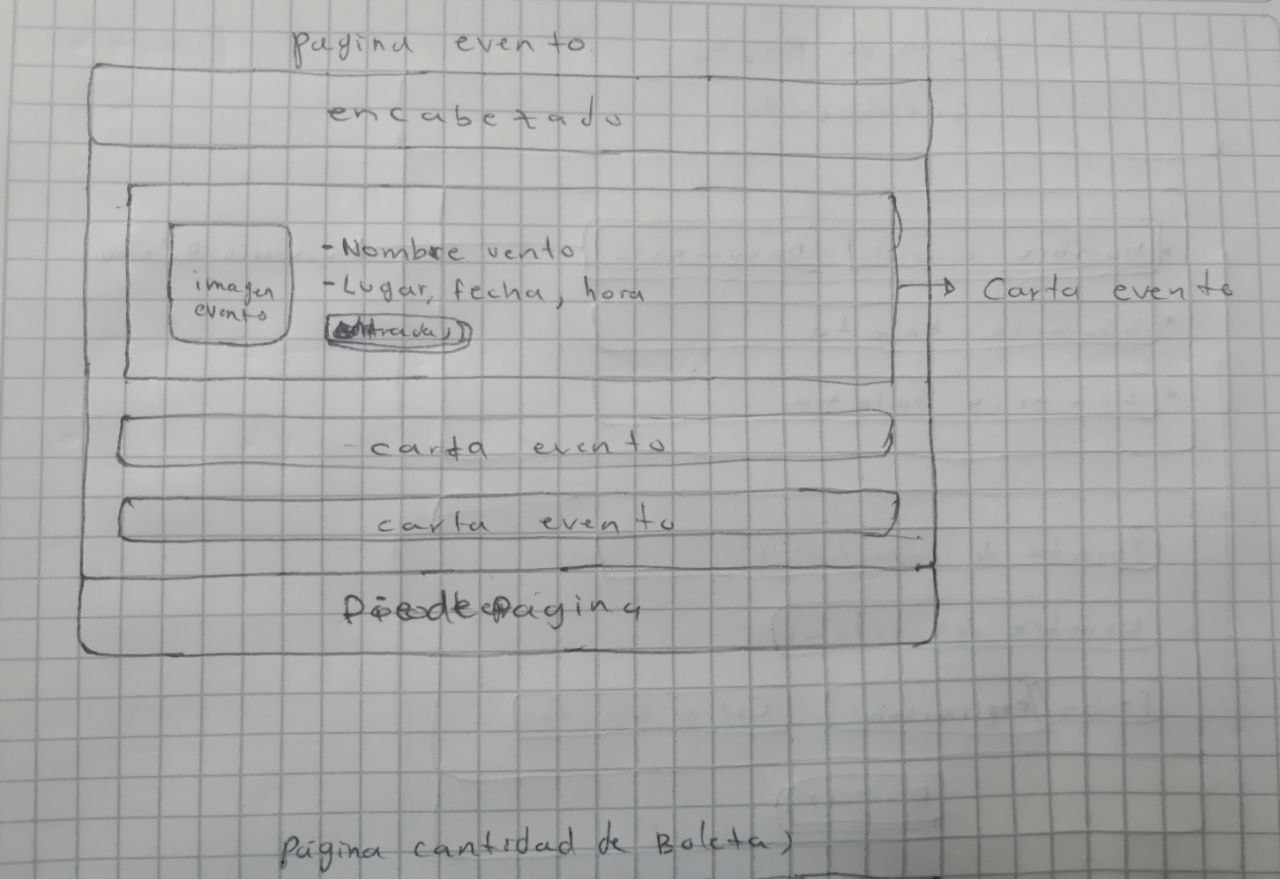 pagina evento
encabezado
imagen
evento
-Nombre vento
-Lugar, fecha, hora
carta evento
carta evento
carta evento
Pie de pagina
pagina cantidad de Boletas